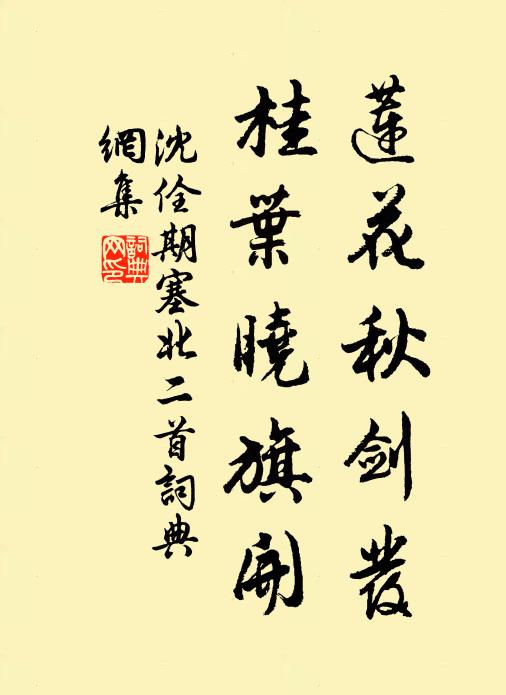 蓮花秋劍發
桂葉曉旗開
沈佺期塞北二首詞典
網集
詞典网印